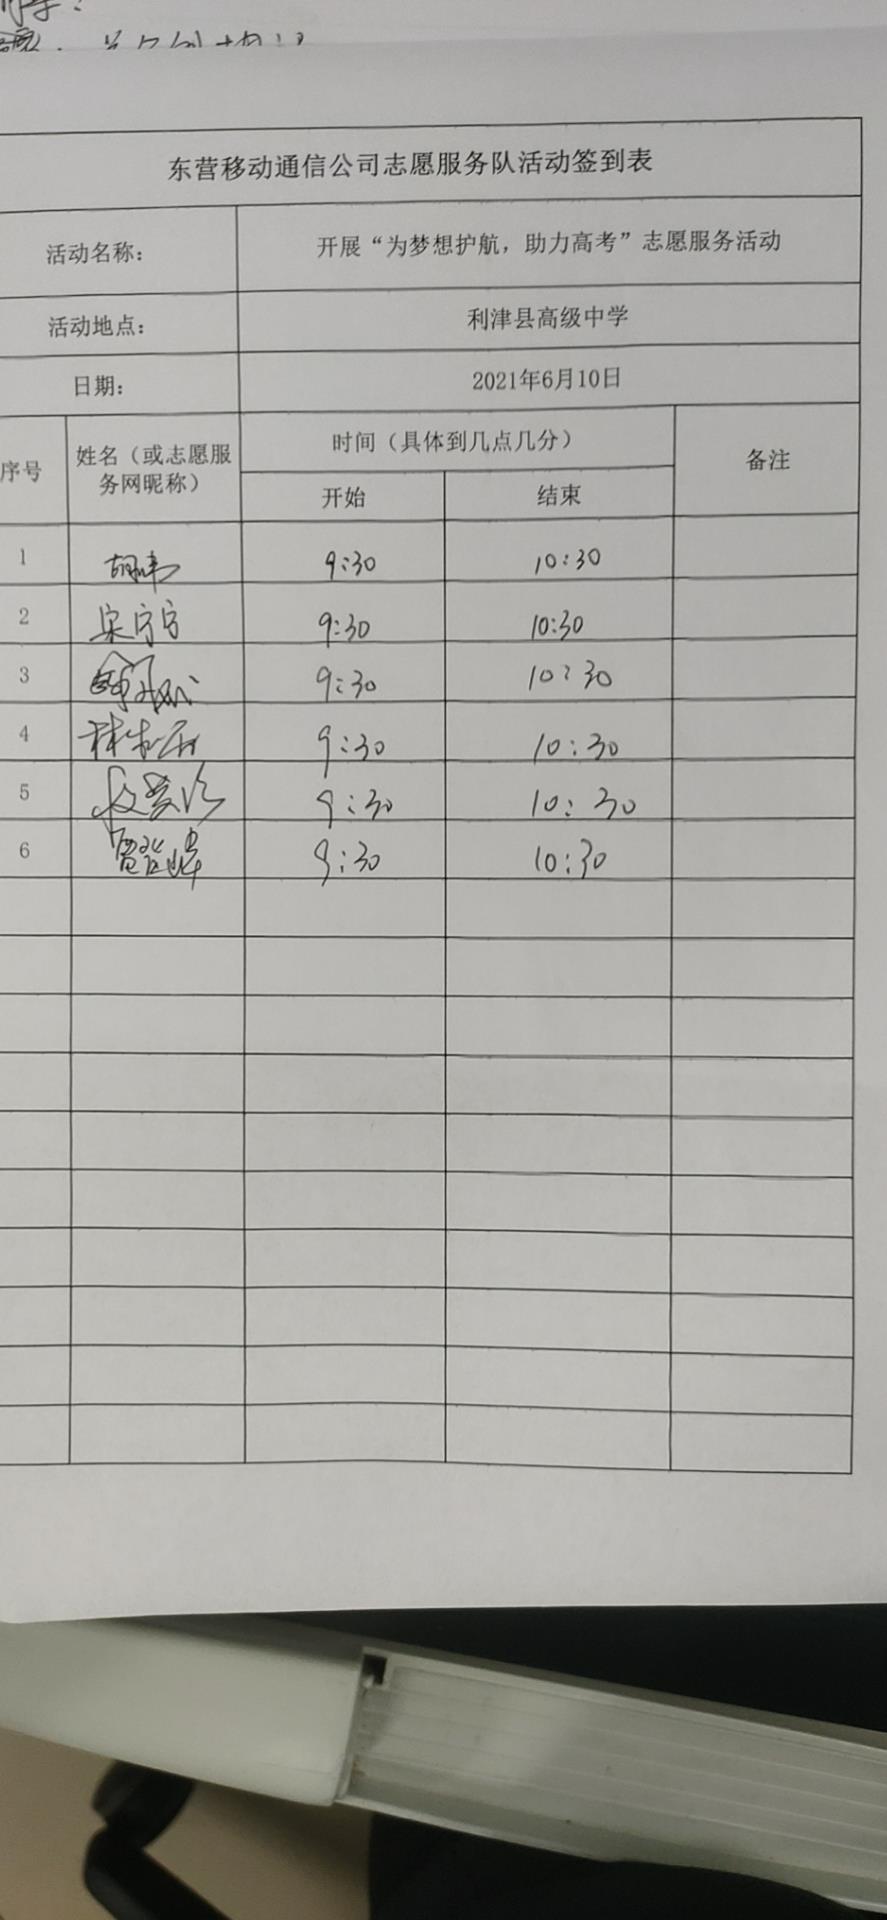 东营移动通信公司志愿服务队活动签到表
活动名称： 开展“为梦想护航，助力高考”志愿服务活动
活动地点： 利津县高级中学
日期： 2021年6月10日
序号 姓名（或志愿服务网昵称） 时间（具体到几点几分） 备注
开始 结束
1 胡伟 9:30 10:30
2 宋宁宁 9:30 10:30
3 9:30 10:30
4 9:30 10:30
5 9:30 10:30
6 9:30 10:30